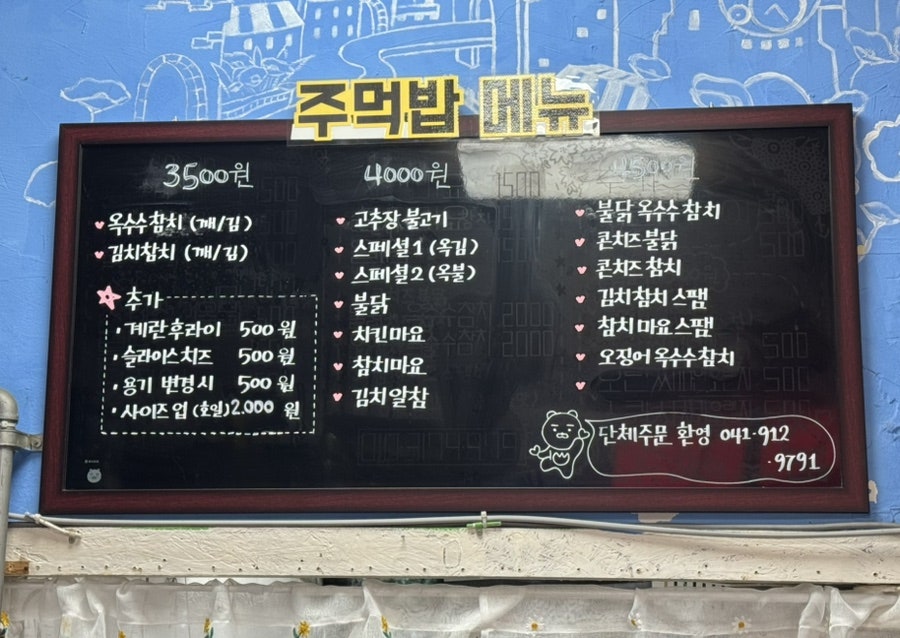 주먹밥 메뉴
3500원
옥수수참치 (깨/김)
김치참치 (깨/김)
추가
계란후라이 500원
슬라이스치즈 500원
용기 변경시 500원
사이즈업 (호일) 2.000 원
4000원
고추장불고기
스페셜1 (옥김)
스페셜2 (옥불)
불닭
치킨마요
참치마요
김치알참
4500원
불닭옥수수참치
콘치즈불닭
콘치즈참치
김치참치스팸
참치마요스팸
오징어옥수수참치
단체주문 환영 041-912
-9791